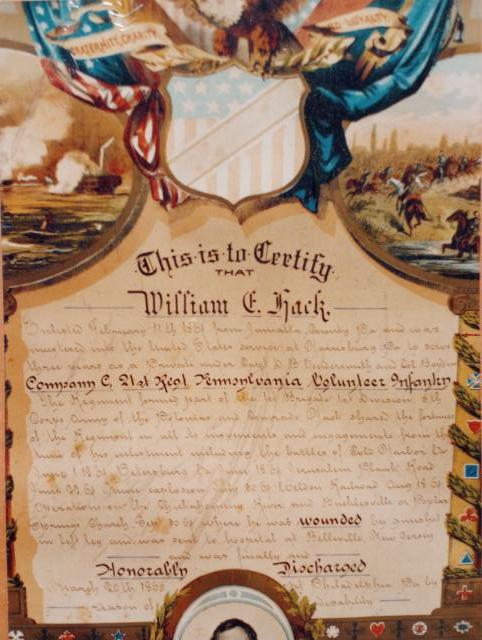 FRATERNITY, CHARITY
LOYALTY.
This is to Certify
THAT
William E. Hack
Enlisted February 11th 1864 from Juniatta County Pa and was
mustered into the United States service at Harrisburg Pa to serve
three years as a Private under Capt
Company C, 21st Regt Pennsylvania Volunteer Infantry
The Regiment formed part of the 1st Brigade 1st Division 5th
Corps Army of the Potomac and Comrade Hack shared the fortunes
of the Regiment in all its movements and engagements from the
time of his enlistment including the battles of Cold Harbor
Petersburg Va June 18 64 Jerusalem Plank Road
June 22 64 Mine explosion July 30 64 Weldon Railroad Aug 18 64
Operations on the River and
Springs Church 64 where he was wounded by
in left leg and was sent to hospital at New Jersey
and was finally and
Honorably Discharged
March 20th 1865 at Philadelphia Pa by
reason of Disability